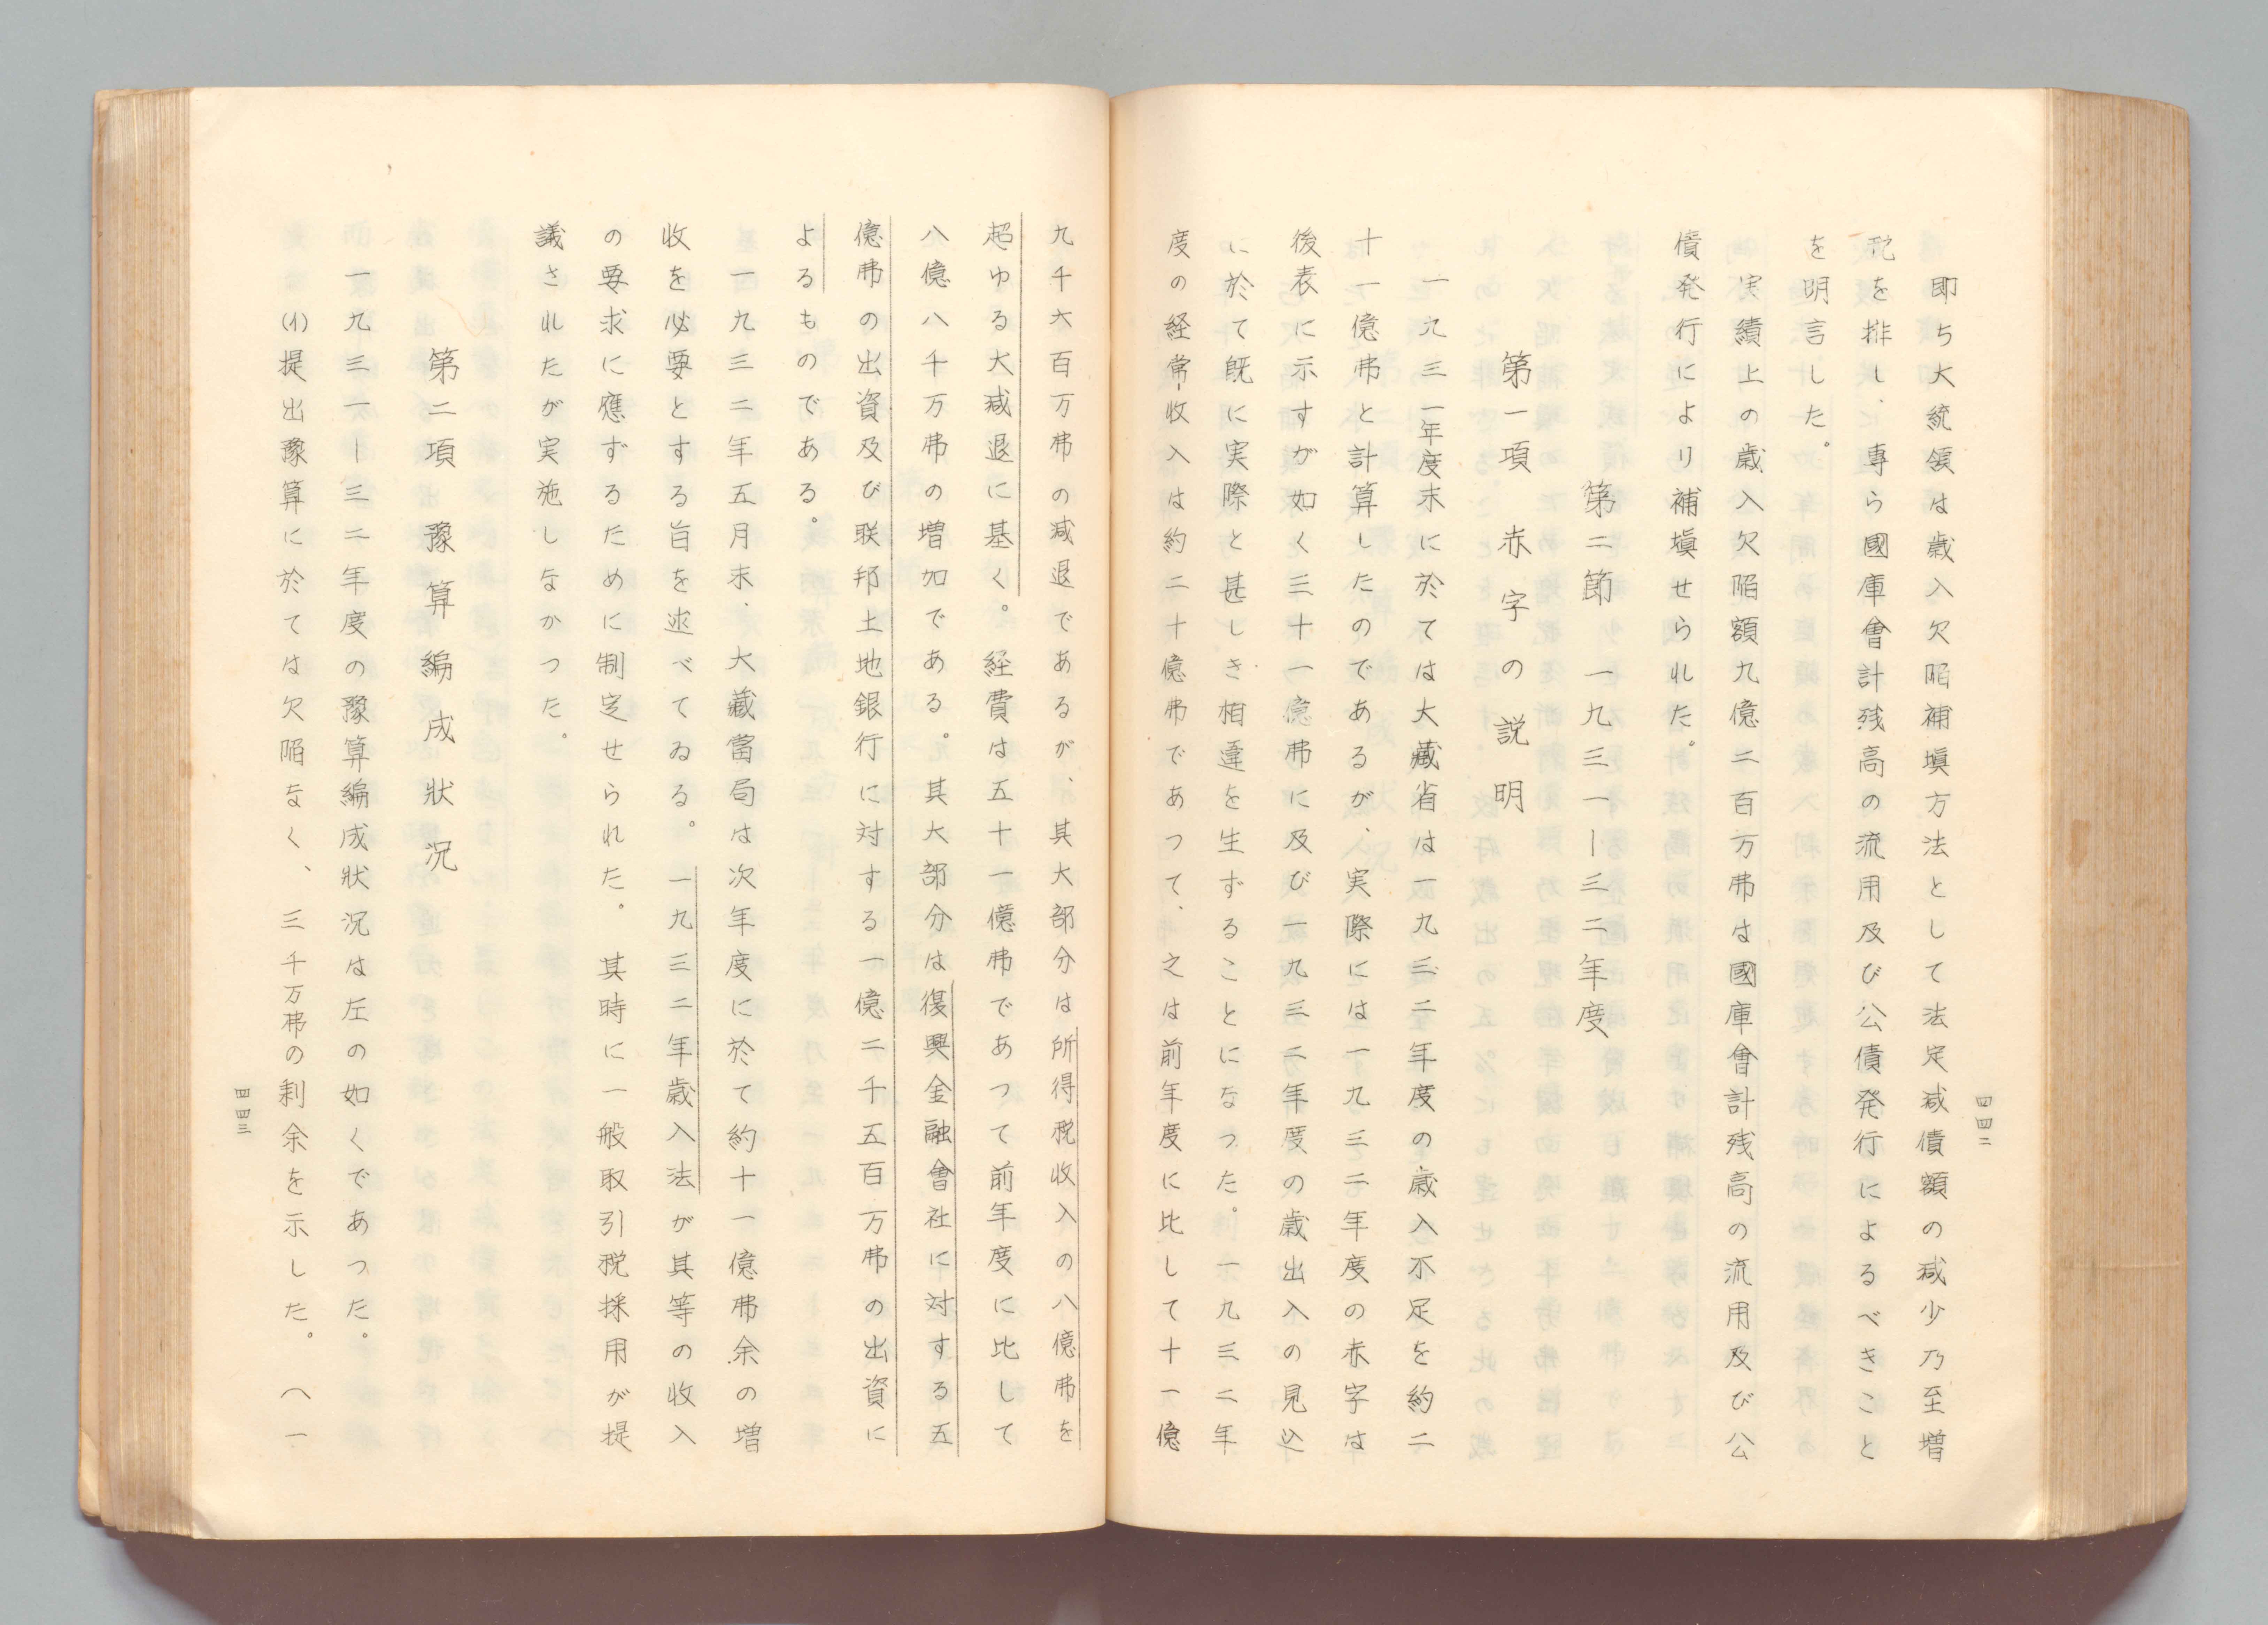 即ち大統領は歳入欠陥補塡方法として法定減債額の減少乃至増
税を排し、専ら國庫會計残高の流用及び公債発行によるべきこと
を明言した。
実績上の歳入欠陥額九億二百万弗は國庫會計残高の流用及び公
債発行により補塡せられた。
第二節 一九三一―三二年度
第一項 赤字の説明
一九三一年度末に於ては大藏省は一九三二年度の歳入不足を約二
十一億弗と計算したのであるが、実際には一九三二年度の赤字は
後表に示すが如く三十一億弗に及び一九三二年度の歳出入の見込
に於て既に実際と甚しき相違を生ずることになつた。一九三二年
度の経常收入は約二十億弗であつて、之は前年度に比して十一億
四四二
九千六百万弗の減退であるが、其大部分は所得税收入の八億弗を
超ゆる大減退に基く。経費は五十一億弗であつて前年度に比して
八億八千万弗の増加である。其大部分は復興金融會社に対する五
億弗の出資及び联邦土地銀行に対する一億二千五百万弗の出資に
よるものである。
一九三二年五月末、大藏當局は次年度に於て約十一億弗余の増
收を必要とする旨を述べてゐる。一九三二年歳入法が其等の收入
の要求に應ずるために制定せられた。其時に一般取引税採用が提
議されたが実施しなかつた。
第二項 豫算編成狀況
一九三一―三二年度の豫算編成狀況は左の如くであつた。
(イ)提出豫算に於ては欠陥なく、三千万弗の剰余を示した。(一
四四三